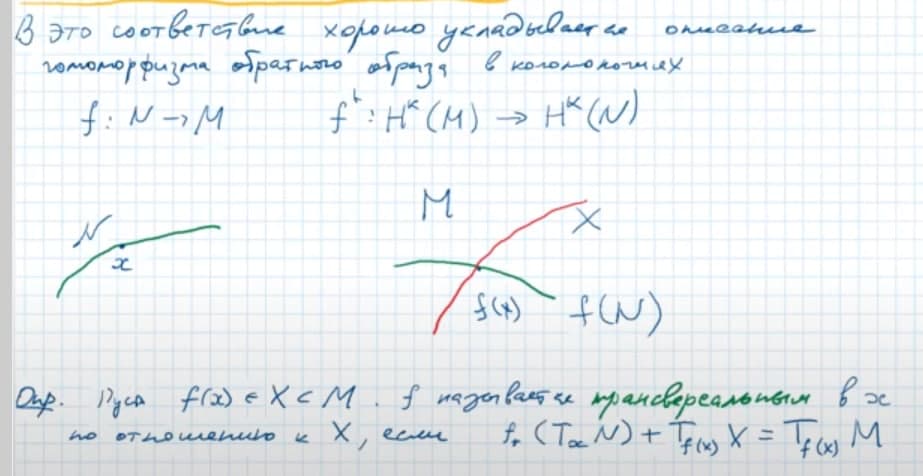 В это соответствие хорошо укладывается описание
гомоморфизма обратного образа в когомологиях
f : N → M f* : Hᵏ(M) → Hᵏ(N)
M
N X
x
f(x) f(N)
Опр. Пусть f(x) ∈ X ⊂ M . f называется трансверсальным в x
по отношению к X, если f_*(T_x N) + T_{f(x)} X = T_{f(x)} M